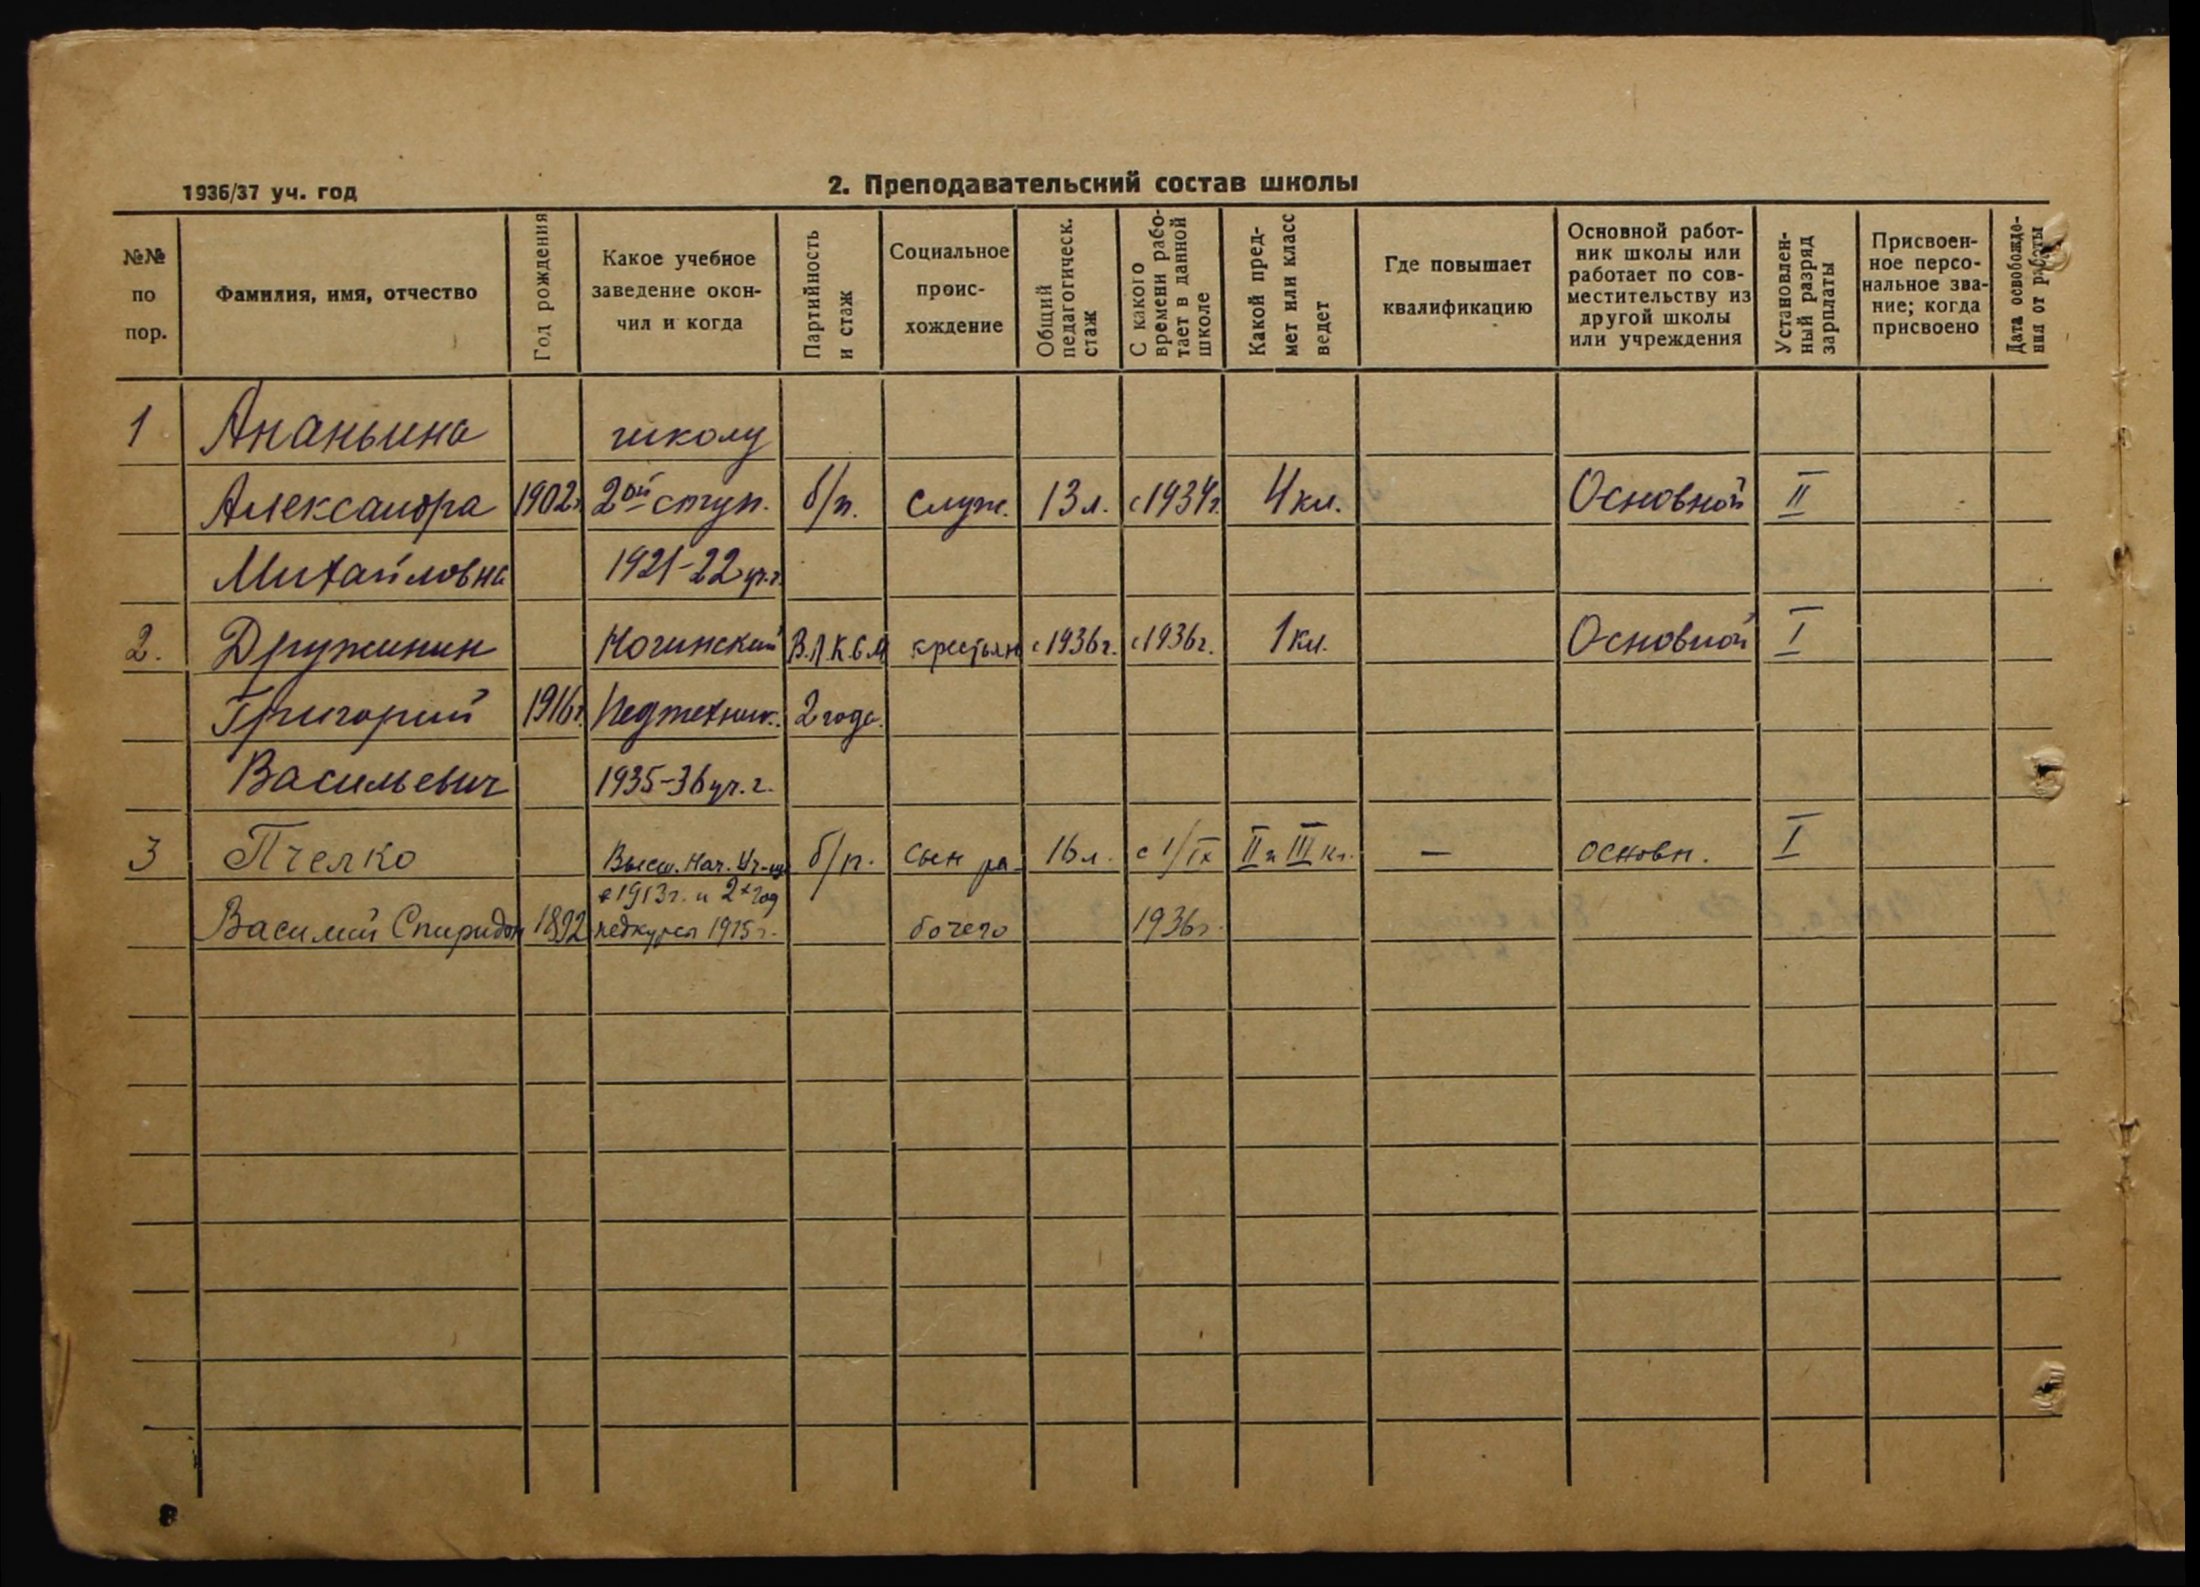 1936/37 уч. год
2. Преподавательский состав школы
№№ по пор.
Фамилия, имя, отчество
Год рождения
Какое учебное заведение окон-чил и когда
Партийность и стаж
Социальное проис-хождение
Общий педагогическ. стаж
С какого времени рабо-тает в данной школе
Какой пред-мет или класс ведет
Где повышает квалификацию
Основной работ-ник школы или работает по сов-местительству из другой школы или учреждения
Установлен-ный разряд зарплаты
Присвоен-ное персо-нальное зва-ние; когда присвоено
Дата освобожде-ния от работы
1 Ананьина школу
Александра 1902г. 2ой ступ. б/п. служ. 13 л. с 1934г. 4 кл. Основной II
Михайловна 1921-22 уч.г.
2. Дружинин Ногинский В.Л.К.С.М крестьян с 1936г. с 1936г. 1 кл. Основной I
Григорий 1916г. Педтехник. 2 года.
Васильевич 1935-36 уч. г.
3 Пчелко Высш. Нач. Уч-ще б/п. сын ра- 16 л. с 1/IX II и III кл. — основн. I
в 1913г. и 2х год
Василий Спиридон 1892 педкурсы 1915г. бочего 1936г.
8